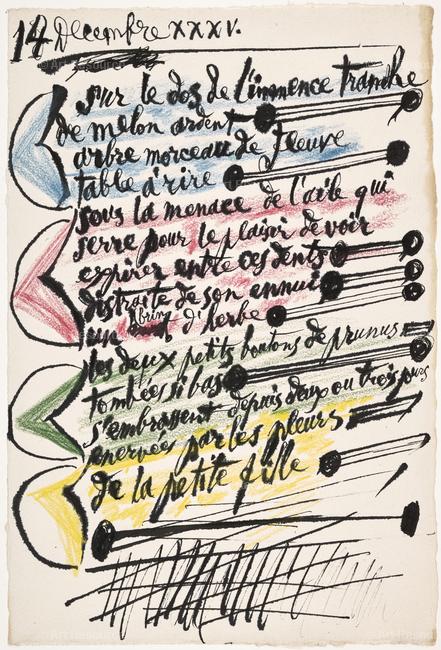 14 Decembre XXXV.
sur le dos de l'immence tranche
de melon ardent
arbre morceau de fleuve
table à rire
sous la menace de l'aile qui
serre pour le plaisir de voir
expirer entre ces dents
distraite de son ennui
un brin d'herbe
les deux petits boutons de prunus
tombées si bas
s'embrassent depuis deux ou trois
enervée par les pleurs
de la petite fille